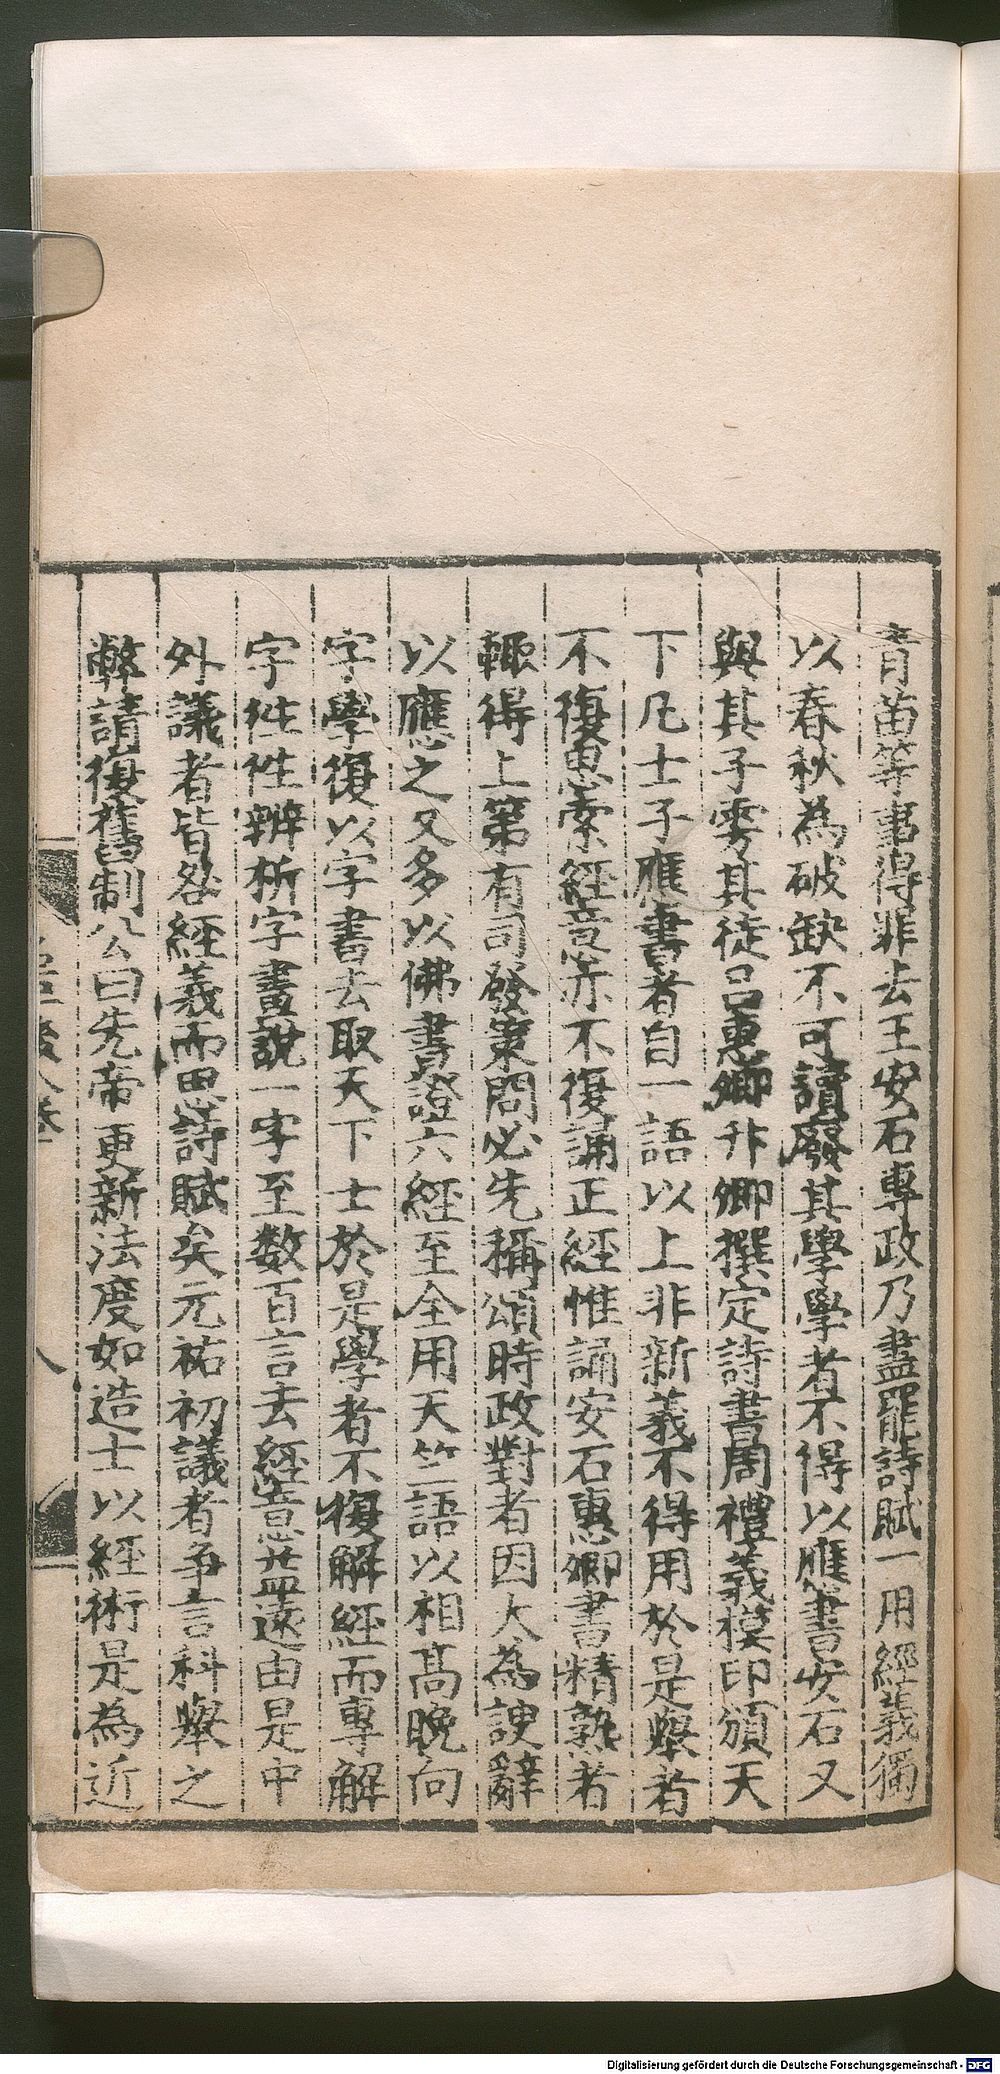 青苗等事得罪去王安石專政乃盡罷詩賦一用經義獨
以春秋為破缺不可讀廢其學學者不得以應書安石又
與其子雱其徒呂惠卿升卿撰定詩書周禮義模印頒天
下凡士子應書者自一語以上非新義不得用於是舉者
不復思索經意亦不復誦正經惟誦安石惠卿書精熟者
輒得上第有司發策問必先稱頌時政對者因大為諛辭
以應之又多以佛書證六經至全用天竺語以相髙晚向
字學復以字書去取天下士於是學者不復解經而專解
字徃徃辨析字畫說一字至数百言去經意益遠由是中
外議者皆咎經義而思詩賦矣元祐初議者争言科舉之
弊請復舊制公曰先帝更新法度如造士以經術是為近
八
Digitalisierung gefördert durch die Deutsche Forschungsgemeinschaft - DFG